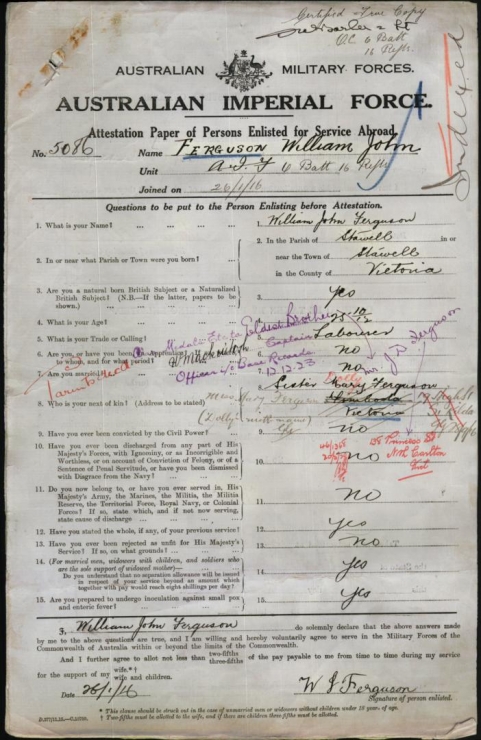 Certified True Copy
O.C. 6 Batt
16 Rfts.
Indexed
AUSTRALIAN MILITARY FORCES.
AUSTRALIAN IMPERIAL FORCE.
Attestation Paper of Persons Enlisted for Service Abroad.
No. 5086 Name FERGUSON William John
Unit A.I.F 6 Batt 16 Rfts
Joined on 26/1/16
Questions to be put to the Person Enlisting before Attestation.
1. What is your Name? ... ... ... 1. William John Ferguson
2. In or near what Parish or Town were you born? ... 2. In the Parish of Stawell in or
near the Town of Stawell
in the County of Victoria
3. Are you a natural born British Subject or a Naturalized
British Subject? (N.B.—If the latter, papers to be
shown.) 3. Yes
4. What is your Age? ... ... ... 4.
5. What is your Trade or Calling? 5. Labourer
Eldest Brother
Captain
Officer i/c Base Records
12.12.23
Mr. J D Ferguson
6. Are you, or have you been,
to whom, and for what period 6. No
7. Are you married? 7. No
8. Who is your next of kin? (Address to be stated) 8. Sister Mary Ferguson
Miss Mary Ferguson
Victoria
9. Have you ever been convicted by the Civil Power? ... 9. No
Princess St
Nth Carlton
Vict
10. Have you ever been discharged from any part of His
Majesty's Forces, with Ignominy, or as Incorrigible and
Worthless, or on account of Conviction of Felony, or of a
Sentence of Penal Servitude, or have you been dismissed
with Disgrace from the Navy? ... ... 10. No
11. Do you now belong to, or have you ever served in, His
Majesty's Army, the Marines, the Militia, the Militia
Reserve, the Territorial Force, Royal Navy, or Colonial
Forces? If so, state which, and if not now serving,
state cause of discharge ... ... 11. No
12. Have you stated the whole, if any, of your previous service? 12. Yes
13. Have you ever been rejected as unfit for His Majesty's
Service? If so, on what grounds? ... ... 13. No
14. (For married men, widowers with children, and soldiers who
are the sole support of widowed mother)—
Do you understand that no separation allowance will be issued
in respect of your service beyond an amount which
together with pay would reach eight shillings per day? 14. Yes
15. Are you prepared to undergo inoculation against small pox
and enteric fever? 15. Yes
I, William John Ferguson do solemnly declare that the above answers made
by me to the above questions are true, and I am willing and hereby voluntarily agree to serve in the Military Forces of the
Commonwealth of Australia within or beyond the limits of the Commonwealth.
And I further agree to allot not less than two-fifths
three-fifths of the pay payable to me from time to time during my service
for the support of my wife.*†
wife and children.
Date 26/1/16 W J Ferguson
Signature of person enlisted.
* This clause should be struck out in the case of unmarried men or widowers without children under 18 years of age.
† Two fifths must be allotted to the wife, and if there are children three fifths must be allotted.